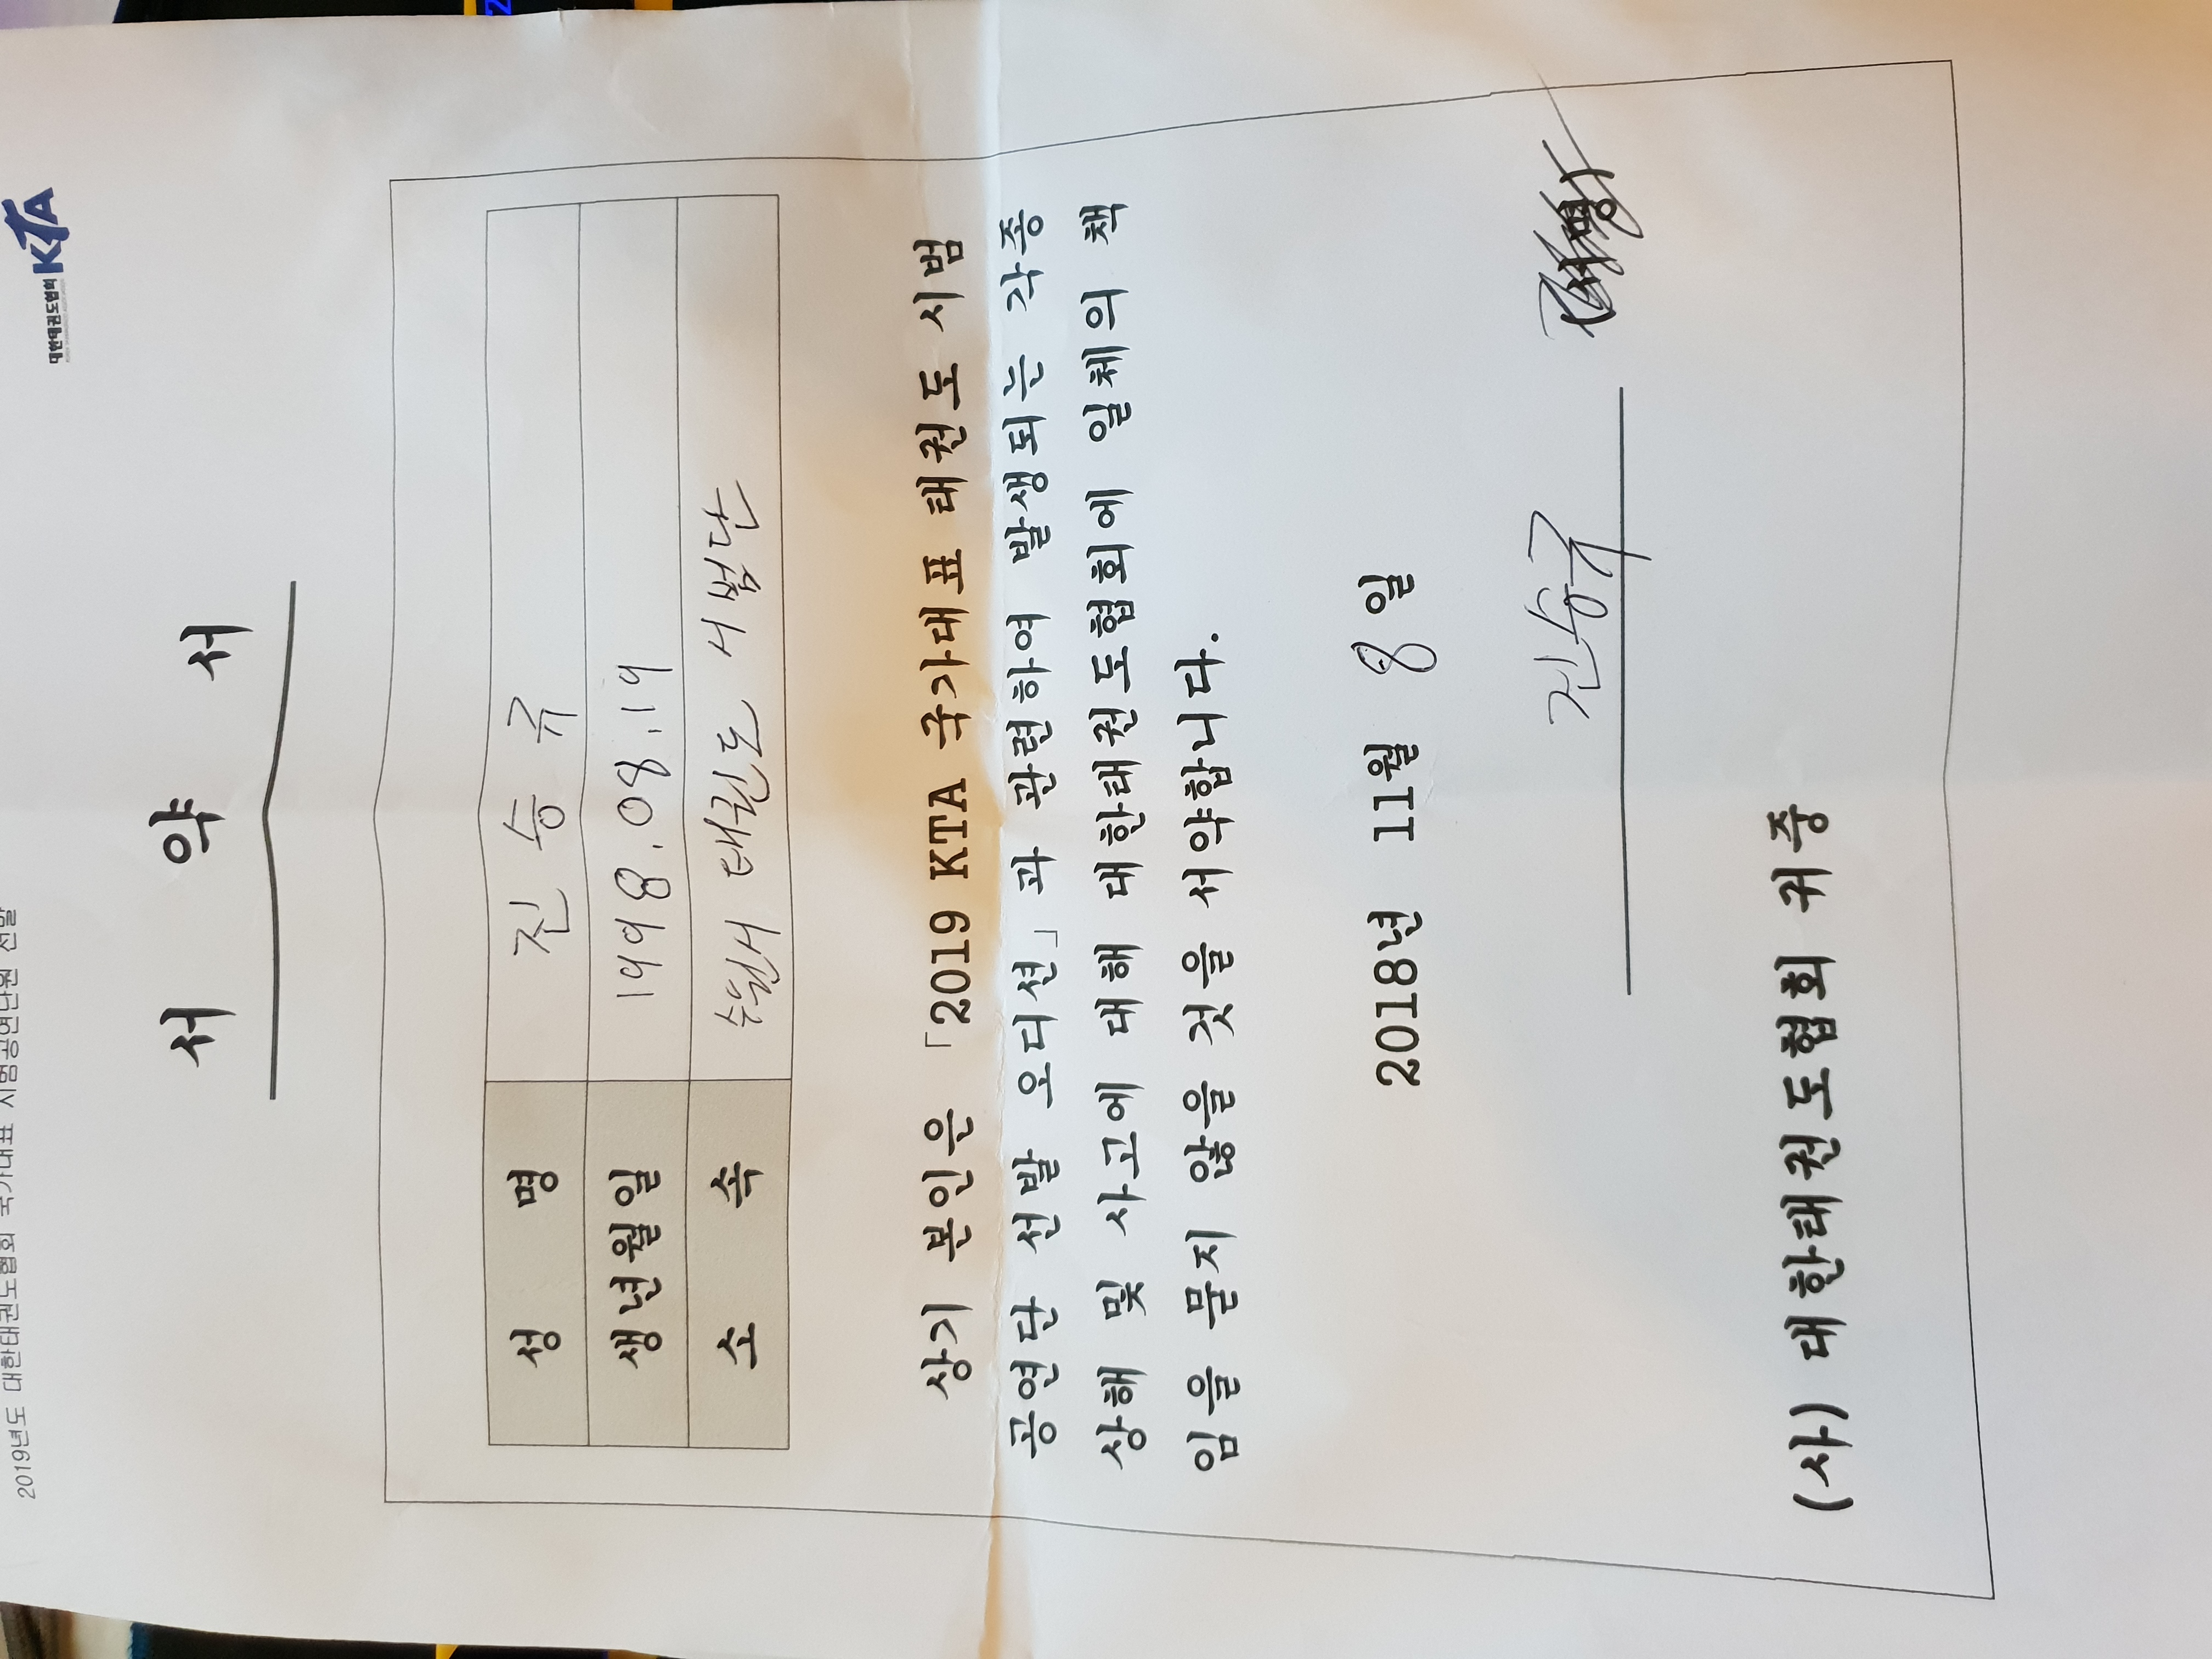 2019년도 대한태권도협회 국가대표 시범공연단원 선발
대한태권도협회 KTA
서 약 서
성 명 진 승 규
생년월일 1998.08.19
소 속 수원시 태권도 시범단
상기 본인은 「2019 KTA 국가대표 태권도 시범
공연단 선발 오디션」과 관련하여 발생되는 각종
상해 및 사고에 대해 대한태권도협회에 일체의 책
임을 물지 않을 것을 서약합니다.
2018년 11월 8일
진승규 (서명)
(사) 대한태권도협회 귀중